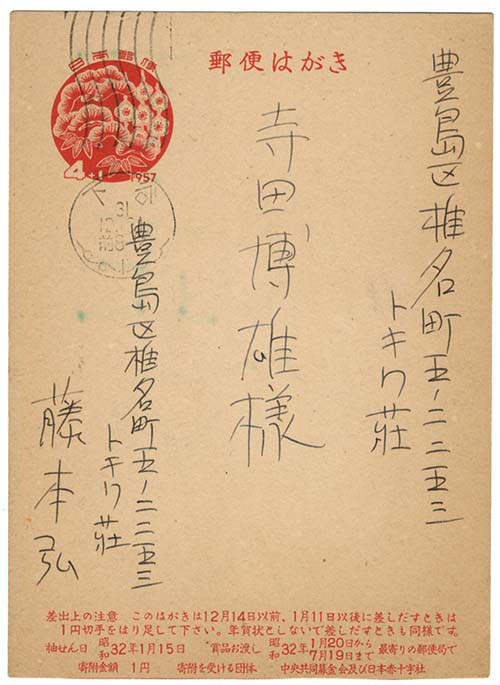 日本郵便
4+1
1957
郵便はがき
豊島区椎名町五ノ二二五三
トキワ荘
寺田博雄様
豊島区椎名町五ノ二二五三
トキワ荘
藤本弘
差出上の注意 このはがきは12月14日以前、1月11日以後に差しだすときは
1円切手をはり足して下さい。年賀状としないで差しだすときも同様です。
抽せん日 昭和32年1月15日 賞品お渡し 昭和32年1月20日から7月19日まで 最寄りの郵便局で
寄附金額 1円 寄附を受ける団体 中央共同募金会及び日本赤十字社